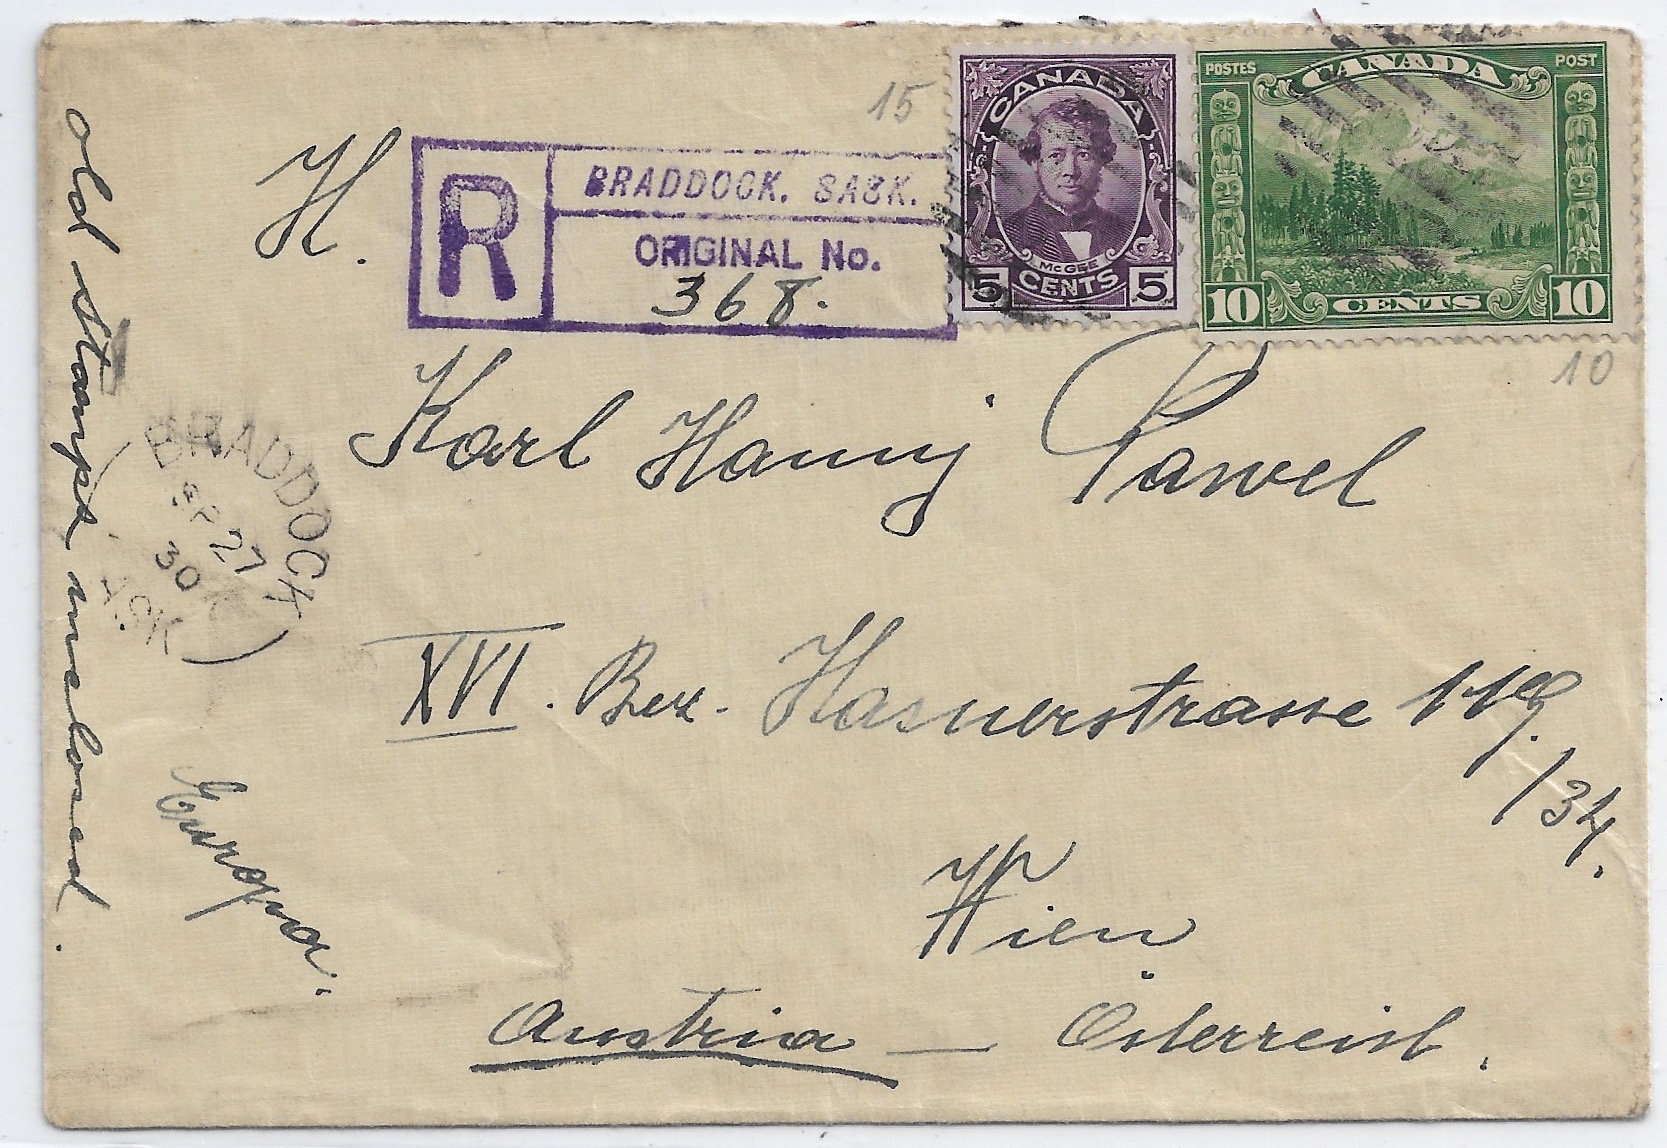 15
H.
R
BRADDOCK. SASK.
ORIGINAL No.
368.
CANADA
McGEE
5 CENTS 5
POSTES CANADA POST
10 CENTS 10
10
Karl Hanny Pawel
XVI. Bez. Hasnerstrasse 119/34.
Wien
Austria — Österreich.
Europa.
old stamps inclosed.
BRADDOCK
SP 27
30
ASK